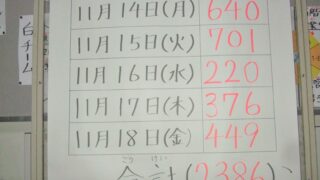 11月14日(月) 640
11月15日(火) 701
11月16日(水) 220
11月17日(木) 376
11月18日(金) 449
ごうけい
合計(2386)
白チーム